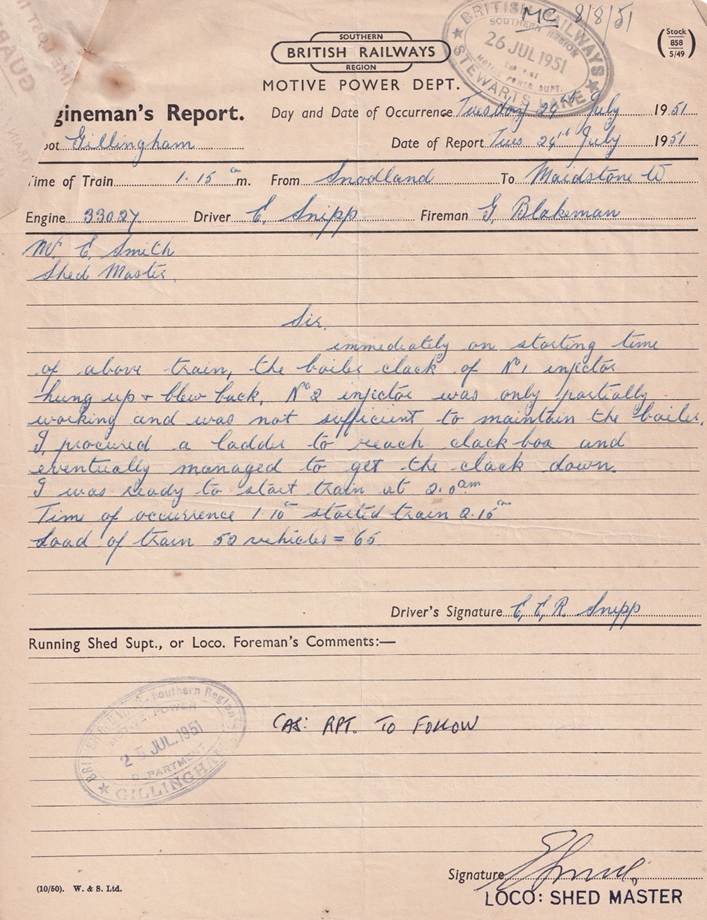 MC 8/8/51
SOUTHERN
BRITISH RAILWAYS
REGION
MOTIVE POWER DEPT.
BRITISH RAILWAYS
SOUTHERN REGION
26 JUL 1951
STEWARTS LANE
Stock
858
5/49
gineman's Report.
Day and Date of Occurrence Tuesday 24th July 1951
ot Gillingham
Date of Report Tues 24th July 1951
ime of Train 1.15 am. From Snodland To Maidstone W
Engine 33027 Driver E. Snipp Fireman G. Blakeman
Mr E. Smith
Shed Master.
Sir.
immediately on starting time
of above train, the boiler clack of No 1 injector
hung up + blew back, No 2 injector was only partially
working and was not sufficient to maintain the boiler.
I procured a ladder to reach clack box and
eventually managed to get the clack down.
I was ready to start train at 2.0 am
Time of occurrence 1.10 am started train 2.10 am
Load of train 52 vehicles = 65
Driver's Signature E. E. R. Snipp
Running Shed Supt., or Loco. Foreman's Comments:—
Southern Region
JUL.1951
DEPARTMENT
GILLINGHAM
CAS: RPT. TO FOLLOW
Signature
LOCO: SHED MASTER
(10/50). W. & S. Ltd.